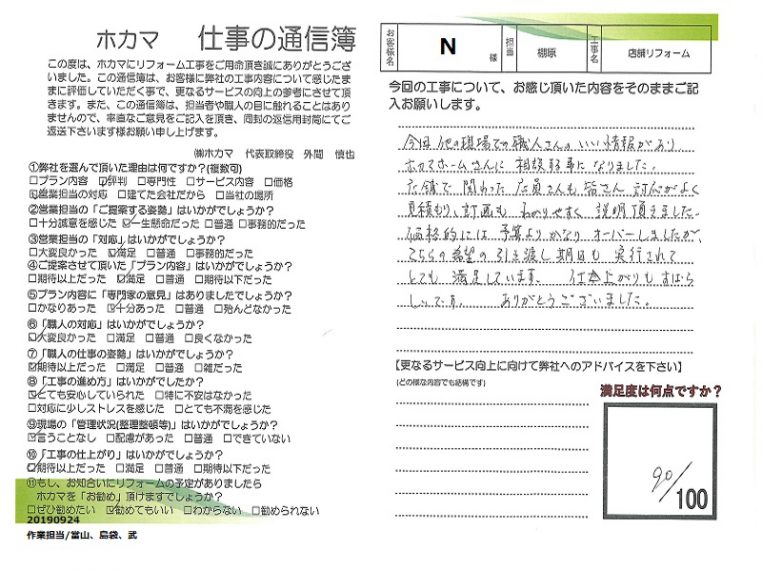 ホカマ 仕事の通信簿
この度は、ホカマにリフォーム工事をご用命頂き誠にありがとうござ
いました。この通信簿は、お客様に弊社の工事内容について感じたま
まに評価していただく事で、更なるサービスの向上の参考にさせて頂
きます。また、この通信簿は、担当者や職人の目に触れることはあり
ませんので、率直なご意見をご記入を頂き、同封の返信用封筒にてご
返送下さいます様お願い申し上げます。
㈱ホカマ 代表取締役 外間 慎也
①弊社を選んで頂いた理由は何ですか?(複数可)
□プラン内容 ☑評判 □専門性 □サービス内容 □価格
☑営業担当の対応 □建てた会社だから □当社の場所
②営業担当の「ご提案する姿勢」はいかがでしょうか?
□十分誠意を感じた ☑一生懸命だった □普通 □事務的だった
③営業担当の「対応」はいかがでしょうか?
□大変良かった ☑満足 □普通 □事務的だった
④ご提案させて頂いた「プラン内容」はいかがでしょうか?
□期待以上だった ☑満足 □普通 □期待以下だった
⑤プラン内容に「専門家の意見」はありましたでしょうか?
□かなりあった ☑十分あった □普通 □殆んどなかった
⑥「職人の対応」はいかがでしょうか?
☑大変良かった □満足 □普通 □良くなかった
⑦「職人の仕事の姿勢」はいかがでしょうか?
☑期待以上だった □満足 □普通 □雑だった
⑧「工事の進め方」はいかがでしたか?
☑とても安心していられた □特に不安はなかった
□対応に少しストレスを感じた □とても不満を感じた
⑨現場の「管理状況(整理整頓等)」はいかがでしょうか?
☑言うことなし □配慮があった □普通 □できていない
⑩「工事の仕上がり」はいかがでしょうか?
☑期待以上だった □満足 □普通 □期待以下だった
⑪もし、お知合いにリフォームの予定がありましたら
ホカマを「お勧め」頂けますでしょうか?
□ぜひ勧めたい ☑勧めてもいい □わからない □勧められない
20190924
作業担当/當山、島袋、武
お客様名 N 様 担当 棚原 工事名 店舗リフォーム
今回の工事について、お感じ頂いた内容をそのままご記
入お願いします。
今回 他の現場での職人さんのいい情報があり
ホカマホームさんに 相談する事に なりました。
店舗で 関わった 店員さんも 皆さん 対応がよく
見積もり、計画も わかりやすく 説明頂きました。
価格的には 予算よりかなり オーバーしましたが、
こちらの希望の引き渡し期日も 実行されて
とても 満足しています、 仕上がりもすばら
しいです。 ありがとうございました。
【更なるサービス向上に向けて弊社へのアドバイスを下さい】
(どの様な内容でも結構です)
満足度は何点ですか?
90/100